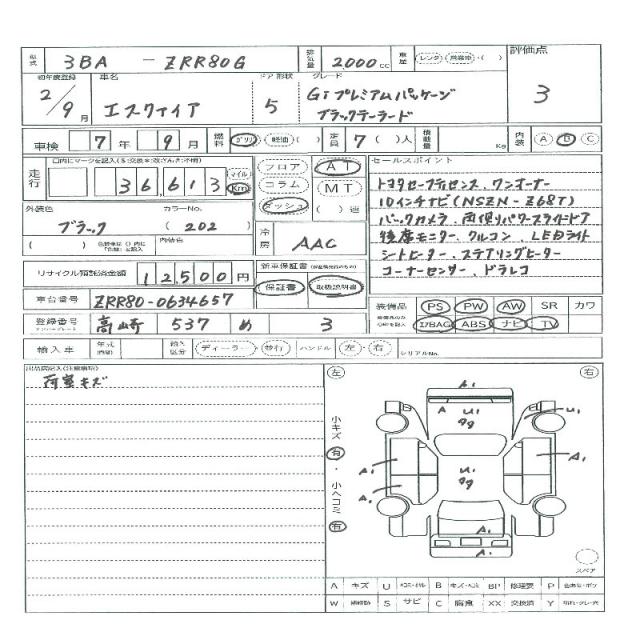 型式 3BA - ZRR80G 排気量 2,000cc 車歴 レンタ・( ) 評価点
初年度登録 車名 ドア 形状 グレード
2/9月 エスクァイア 5 Giプレミアムパッケージ 3
ブラックテーラード
車検 7年 9月 燃料 ガソリン 軽油 ( ) 定員 7( )人 積載量 Kg 内装 A B C
走行 36,613 マイル Km フロア AT セールスポイント
コラム MT トヨタセーフティセンス、ワンオーナー
外装色 カラーNo. ダッシュ ( )速 10インチナビ(NSZN-Z68T)
ブラック (202) バックカメラ、両側パワースライドドア
( ) 内装色 冷房 AAC 後席モニター、クルコン、LEDライト
シートヒーター、ステアリングヒーター
リサイクル預託済金額 12,500円 新車保証書 コーナーセンサー、ドラレコ
保証書 取扱説明書
車台番号 ZRR80-0634657 装備品 PS PW AW SR カワ
登録番号 高崎 537 め 3 エアBAG ABS ナビ TV
輸入車 年式 輸入区分 ディーラー・並行 ハンドル 左・右 シリアルNo.
荷室キズ
左 右
A1
A U1 U1
小キズ 有・小ヘコミ 有
A1 A1
U1
A1
A1
A1
スペア
A キズ U B キズ・ヘコミ BP 修理要 P
W S サビ C 腐食 XX 交換済 Y